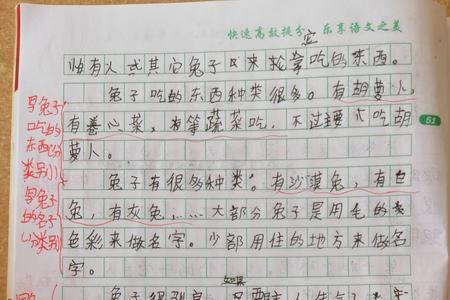 快速高效提分 乐享语文之美
它
怕有人或其它兔子又来抢拿吃的东西。
兔子吃的东西种类很多。有胡萝人,
有善心菜,有等蔬菜吃,不过主要不吃胡
51
萝人。
兔子有很多种类。有沙漠兔,有白
兔,有灰兔,……大部分兔子是用毛的
色彩来做名字。少部用住的地方来做名
字。
如果
写兔子
吃的
东西(分
类别)
写兔子
的名子
(分类别)